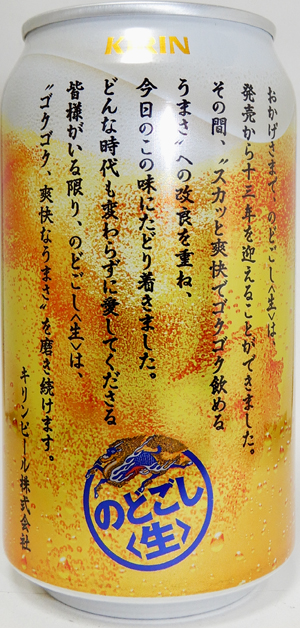 KIRIN
おかげさまで、のどごし〈生〉は
発売から十三年を迎えることができました。
その間、〝スカッと爽快でゴクゴク飲める
うまさ〟への改良を重ね、
今日のこの味にたどり着きました。
どんな時代も変わらずに愛してくださる
皆様がいる限り、のどごし〈生〉は、
〝ゴクゴク、爽快なうまさ〟を磨き続けます。
キリンビール株式会社
のどごし
〈生〉